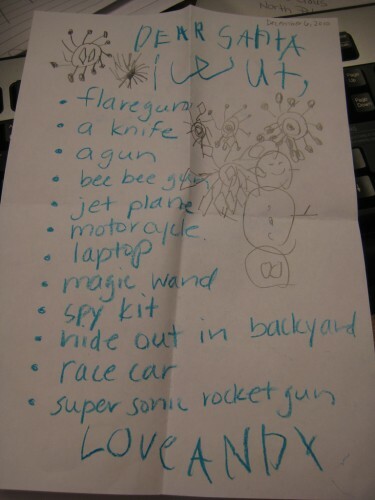 DEAR SANTA
i w ut,
• flaregun
• a knife
• a gun
• bee bee gun
• jet plane
• motorcycle
• laptop
• magic wand
• spy kit
• hide out in backyard
• race car
• super sonic rocket gun
LOVE ANDY